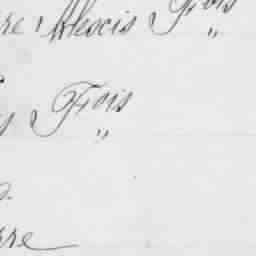 re, Alexis Frois
"
s Frois
"
rre